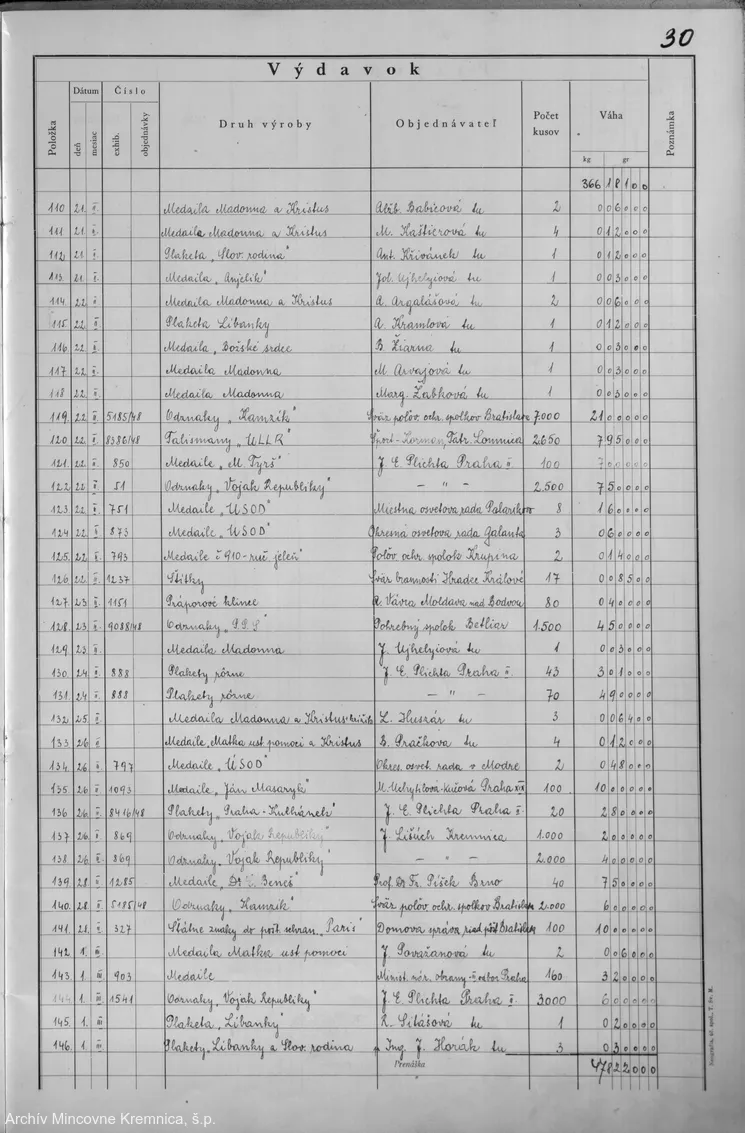 30
Výdavok
Položka Dátum Číslo Druh výroby Objednávateľ Počet kusov Váha Poznámka
deň mesiac exhib. objednávky kg gr
366 18100
110 21. II. Medaila Madonna a Kristus Alžb. Babicová tu 2 006000
111 21. II. Medaila Madonna a Kristus M. Kaštierová tu 4 012000
112 21. II. Plaketa „Slov. rodina" Ant. Křivánek tu 1 012000
113. 21. II. Medaila „Anjelik" Jol. Ujhelyiová tu 1 003000
114. 22. II. Medaila Madonna a Kristus A. Argalášová tu 2 006000
115. 22. II. Plaketa Libanky A. Kramlová tu 1 012000
116. 22. II. Medaila „Božské srdce B. Žiarna tu 1 003000
117 22. II. Medaila Madonna M. Arvajová tu 1 003000
118 22. II. Medaila Madonna Marg. Žabková tu 1 003000
119. 22. II. 5185/48 Odznaky „Kamzík" Sväz polov. ochr. spolkov Bratislava 7.000 21 0000
120 22. II. 8386/48 Talismany „ULLR" Šport-Korman, Tatr. Lomnica 2.650 795000
121. 22. II. 850 Medaile „M. Tyrš" J. E. Plichta Praha II. 100 70000
122. 22. II. 51 Odznaky „Vojak Republiky" — " — 2.500 750000
123 22. II. 751 Medaile „ÚSOD" Miestna osvetova rada Palarikovo 8 160000
124 22. II. 873 Medaile „ÚSOD" Okresná osvetova rada Galanta 3 060000
125. 22. II. 793 Medaile č 910-ruč. jeleň Polov. ochr. spolok Krupina 2 014000
126. 22. II. 1237 Štítky Sväz brannosti Hradec Králové 17 008500
127. 23 II. 1151 Práporové klince R. Vávra Moldava nad Bodvou 80 040000
128. 23 II. 9088/48 Odznaky „P.P.S" Pohrebný spolok Betliar 1.500 450000
129. 23 II. Medaila Madonna J. Ujhelyiová tu 1 003000
130. 24 II. 888 Plakety rôzne J. E. Plichta Praha II. 43 301000
131. 24 II. 888 Plakety rôzne — " — 70 490000
132 25 II. Medaila Madonna a Kristus L. Huszár tu 3 006400
133 26 II. Medaile „Matka ust. pomoci a Kristus B. Pračkova tu 4 012000
134. 26 II. 797 Medaile „ÚSOD" Okres. osvet. rada v Modre 2 048000
135 26 II. 1093 Medaile „Ján Masaryk" Praha XIX 100 100000
136 26. II. 8416/48 Plakety „Praha-Kulhánek" J. E. Plichta Praha II. 20 280000
137 26. II. 869 Odznaky „Vojak Republiky" J. Lišúch Kremnica 1.000 20000
138. 26 II. 869 Odznaky „Vojak Republiky" — " — 2.000 40000
139. 28 II. 1285 Medaile „Dr. E. Beneš" Prof. Dr Fr. Píšek Brno 40 750000
140. 28 II. 5185/48 Odznaky „Kamzík" Sväz polov. ochr. spolkov Bratislava 2.000 60000
141. 28. II. 327 Štátne znaky do pošt. schrán. „Paris" Domova správa riad. pôšt Bratislava 100 100000
142 1. III. Medaila Matka ust. pomoci J. Považanová tu 2 006000
143. 1 III. 903 Medaile Minist. nár. obrany Praha 160 320000
144 1. III. 1541 Odznaky „Vojak Republiky" J. E. Plichta Praha II. 3000 60000
145. 1. III. Plaketa „Libanky" R. Sitášová tu 1 020000
146. 1 III. Plakety „Libanky a Slov. rodina Ing. J. Horák tu 3 030000
Prenáška 47822000
Archív Mincovne Kremnica, š.p.